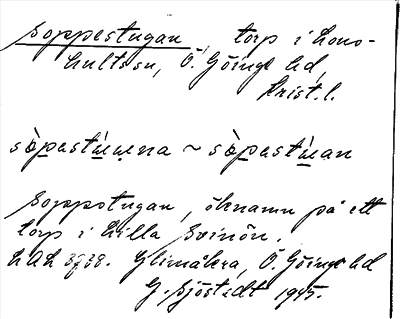 Soppestugan, torp i Lons-
hultssn, Ö. Göinge hd,
Krist. l.
sòpestúwna ~ sòpestúan
Soppstugan, öknamn på ett
torp i Lilla Svinön.
LAL 3738. Glimåkra, Ö. Göinge hd
G. Sjöstedt 1945.